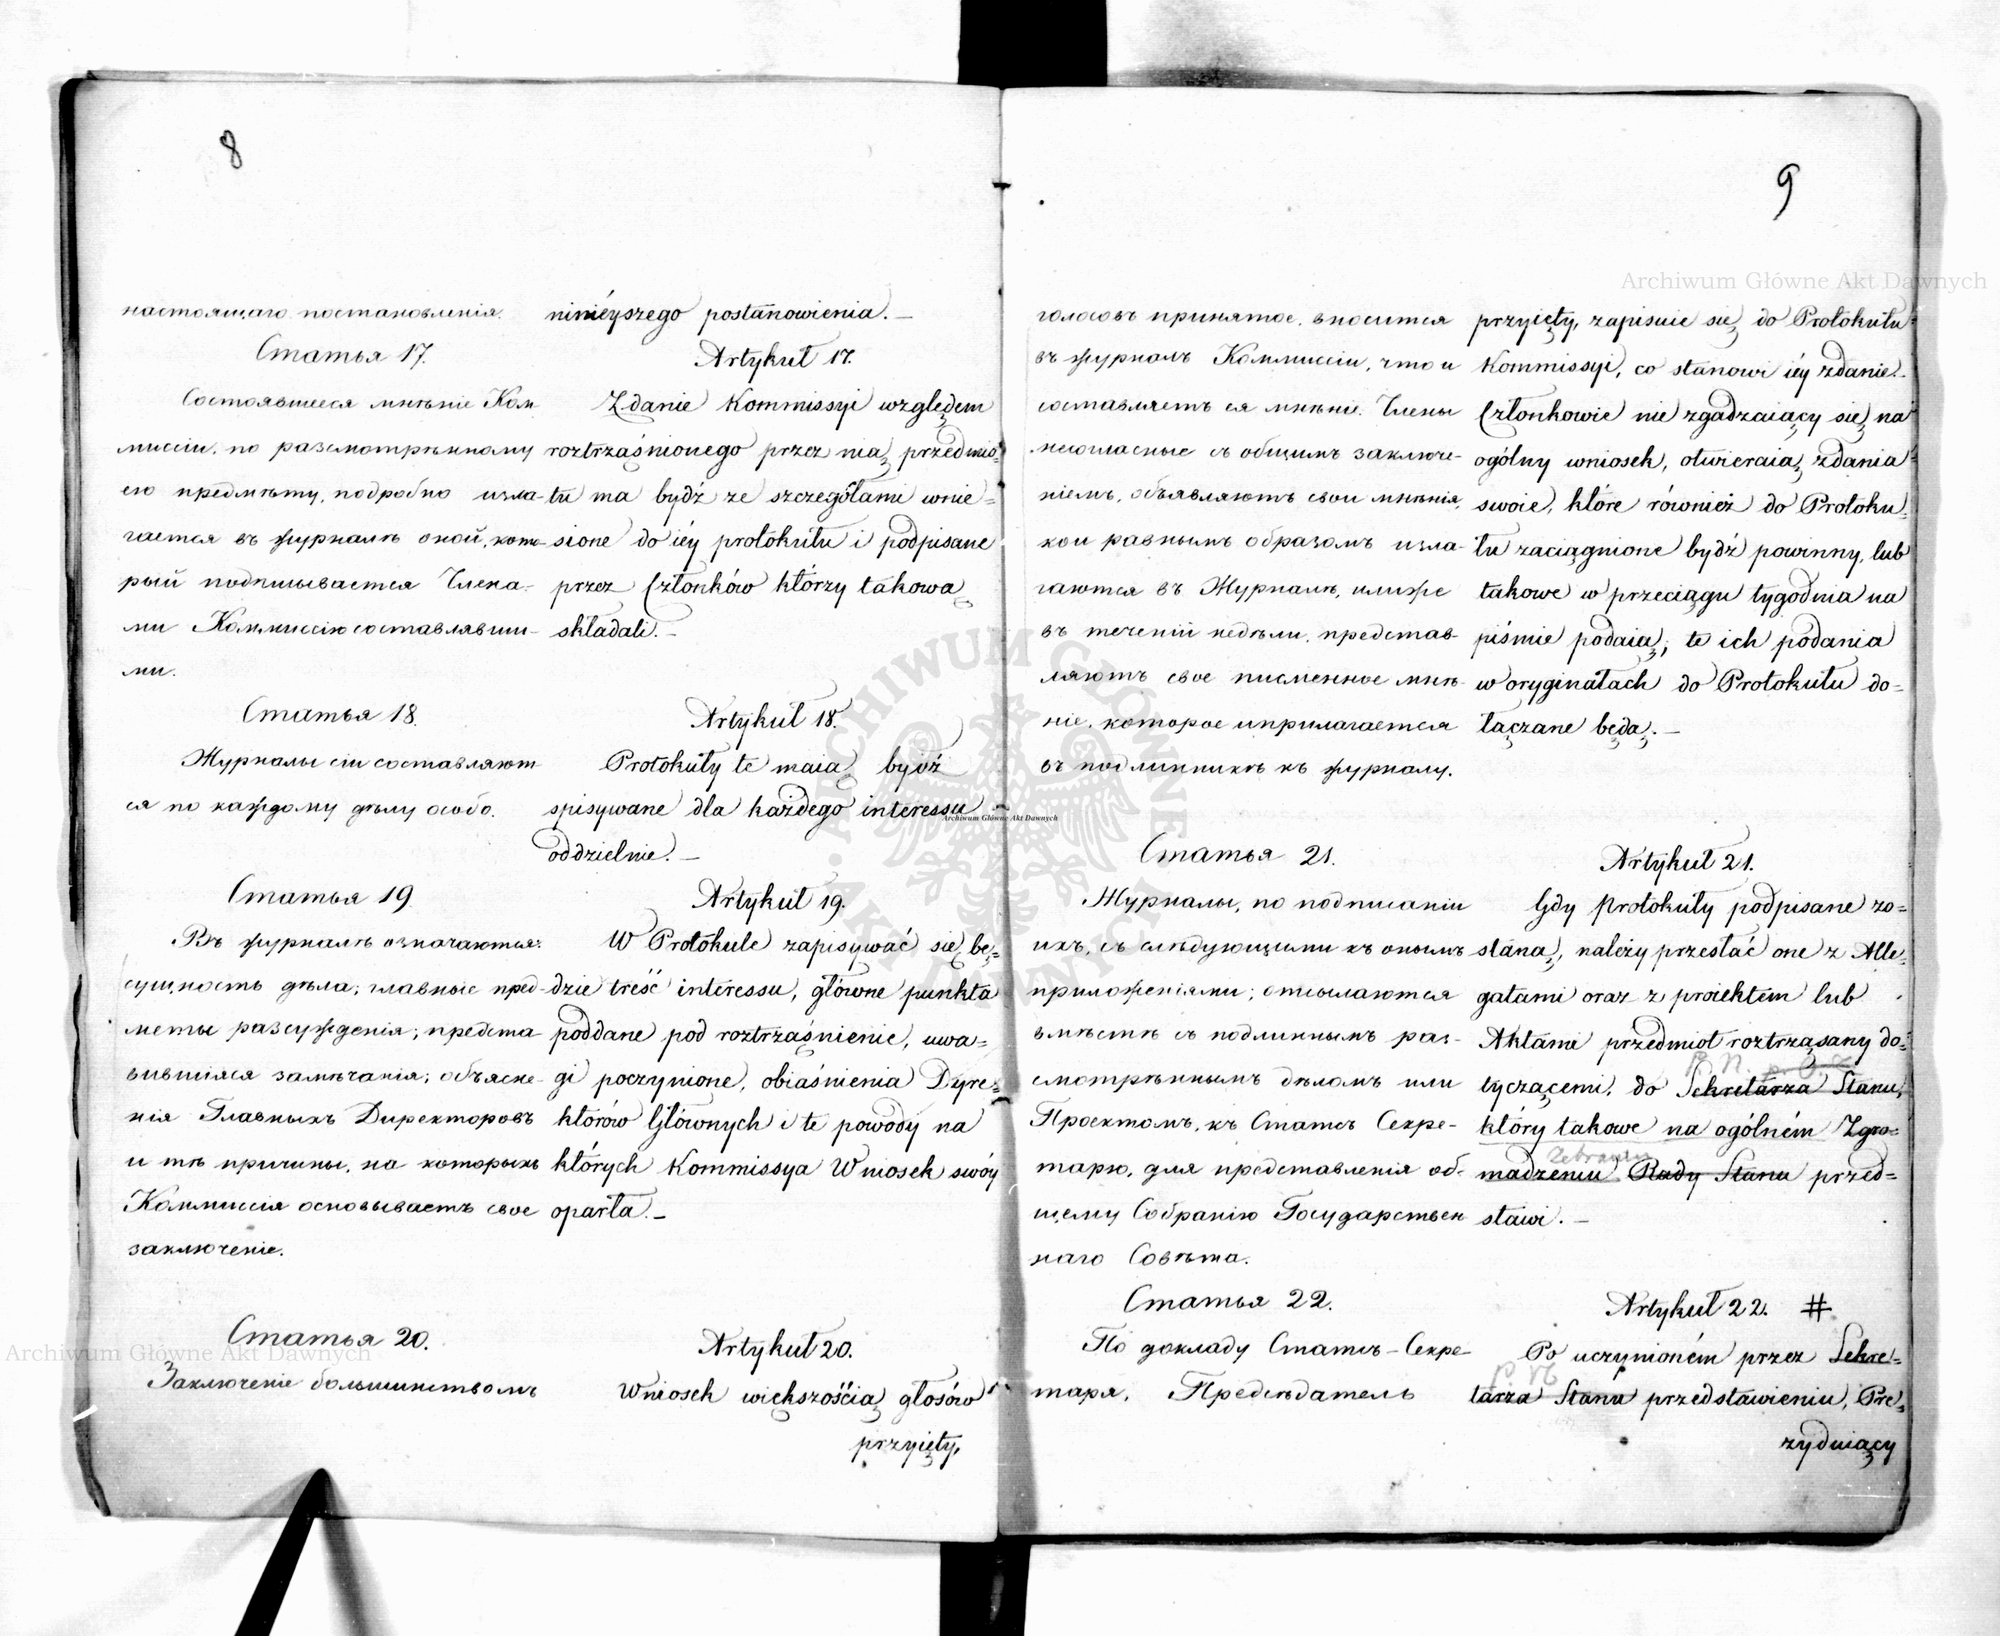 8
настоящаго постановленія.
Статья 17.
Состоявшееся мнѣніе Ком
миссіи, по разсмотрѣнному
ею предмету, подробно изла-
гается въ журналѣ оной, кото
рый подписывается Члена-
ми Коммиссію составлявши-
ми.
Статья 18.
Журналы сіи составляют
ся по каждому дѣлу особо.
Статья 19
Въ журналѣ означаются:
сущность дѣла; главные пред-
меты разсужденія; предста-
вившіяся замѣчанія; объясне-
нія Главныхъ Директоровъ
и тѣ причины, на которыхъ
Коммиссія основываетъ свое
заключеніе.
Статья 20.
Заключеніе большинствомъ
ninieyszego postanowienia. —
Artykuł 17.
Zdanie Kommissyi względem
roztrząśnionego przez nią przedmio-
tu ma bydź ze szczegółami wnie=
sione do iéy protokułu i podpisane
przez Członków którzy takową
składali. —
Artykuł 18.
Protokuły te maią bydź
spisywane dla każdego interessu
oddzielnie. —
Artykuł 19.
W Protokule zapisywać się bę=
dzie treść interessu, główne punkta
poddane pod roztrząśnienie, uwa=
gi poczynione, obiaśnienia Dyre=
ktorów Głównych i te powody na
których Kommissya Wniosek swóy
oparła. —
Artykuł 20.
Wniosek większością głosów
przyięty,
9
голосовъ принятое, вносится
въ журналъ Коммиссіи, что и
составляетъ ея мнѣніе. Члены
несогласные съ общимъ заключе-
ніемъ, объявляютъ свои мнѣнія,
кои равнымъ образомъ изла-
гаются въ Журналѣ, или же
въ теченіи недѣли, представ-
ляютъ свое писменное мнѣ-
ніе, которое и прилагается
въ подлинникѣ къ журналу.
Статья 21.
Журналы, по подписаніи
ихъ, съ слѣдующими къ онымъ
приложеніями; отсылаются
вмѣстѣ съ подлиннымъ раз-
смотрѣннымъ дѣломъ или
Проектомъ, къ Статсъ Секре-
тарю, для представленія об-
щему Собранію Государствен
наго Совѣта.
Статья 22.
По докладу Статсъ-Секре-
таря, Предсѣдатель
przyięty, zapisuie się do Protokułu
Kommissyi, co stanowi iéy zdanie.
Członkowie nie zgadzaiący się na
ogólny wniosek, otwieraią zdania
swoie, które również do Protoku-
łu zaciągnione bydź powinny, lub
takowe w przeciągu tygodnia na
piśmie podaią; te ich podania
w oryginałach do Protokułu do=
łączane będą. —
Artykuł 21.
Gdy protokuły podpisane zo=
staną, należy przesłać one z Alle-
gatami oraz z proiektem lub
Aktami przedmiot roztrząsany do=
tyczącemi, do Sekretarza Stanu,
który takowe na ogólném Zgro=
Zebraniu
madzeniu Rady Stanu przed=
stawi. —
Artykuł 22. #
Po uczynioném przez Sekre=
tarza Stanu przedstawieniu, Pre=
zyduiący
Archiwum Główne Akt Dawnych
Archiwum Główne Akt Dawnych
Archiwum Główne Akt Dawnych
ARCHIWUM GŁÓWNE AKT DAWNYCH